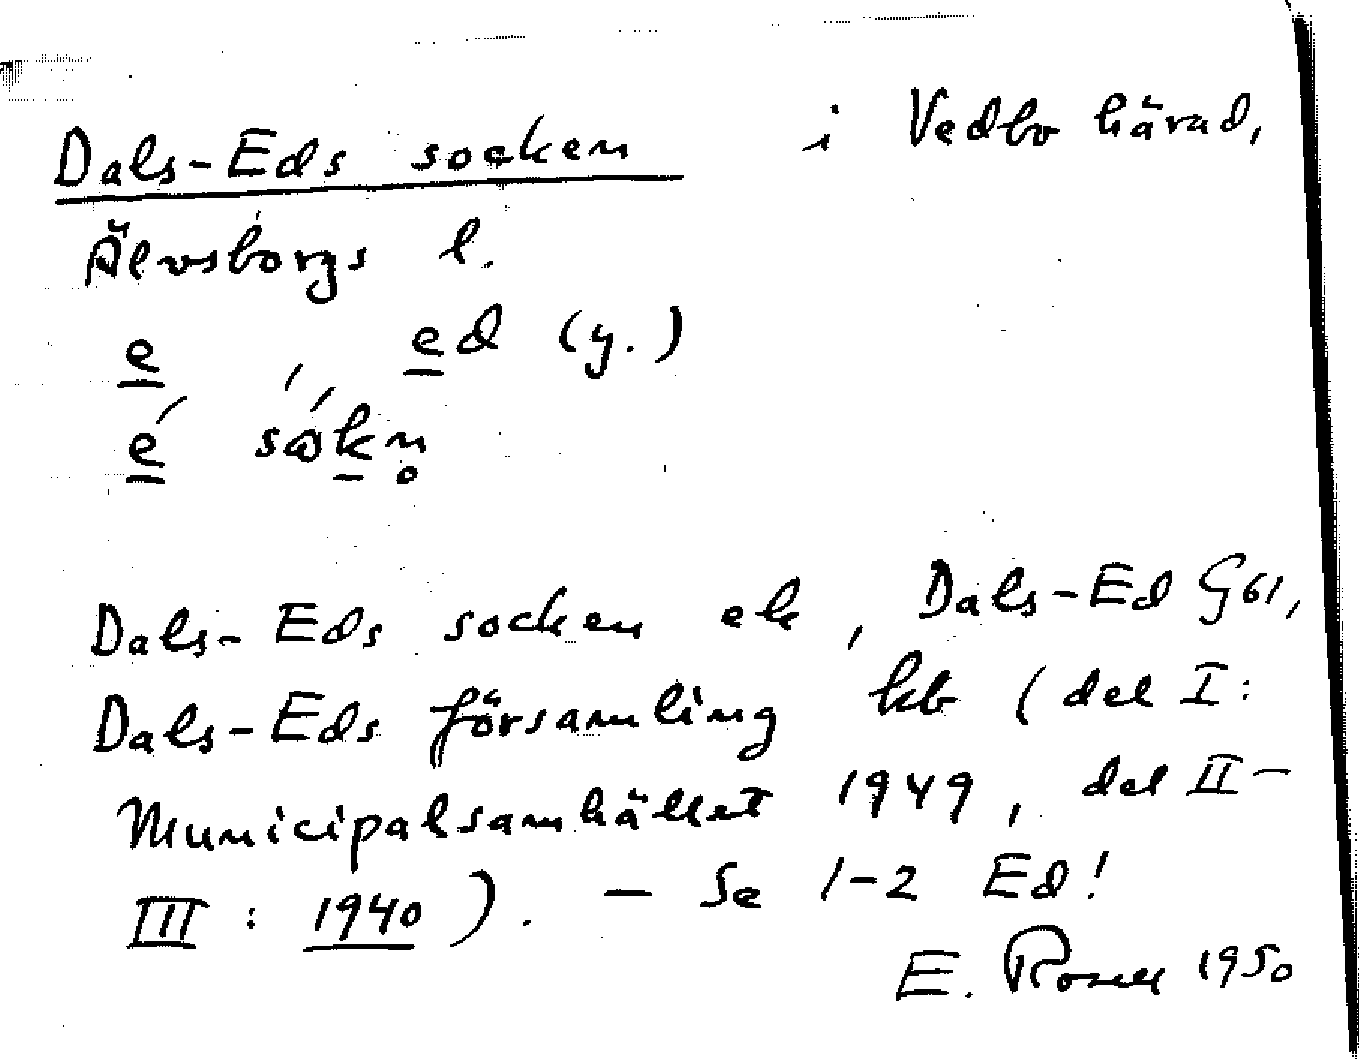 Dals-Eds socken i Vedbo härad,
Älvsborgs l.
e , ed (y.)
é sókn̥
Dals-Eds socken ek, Dals-Ed G61,
Dals-Eds församling kb (del I:
Municipalsamhället 1949, del II-
III: 1940). – Se 1-2 Ed!
E. Rosell 1950